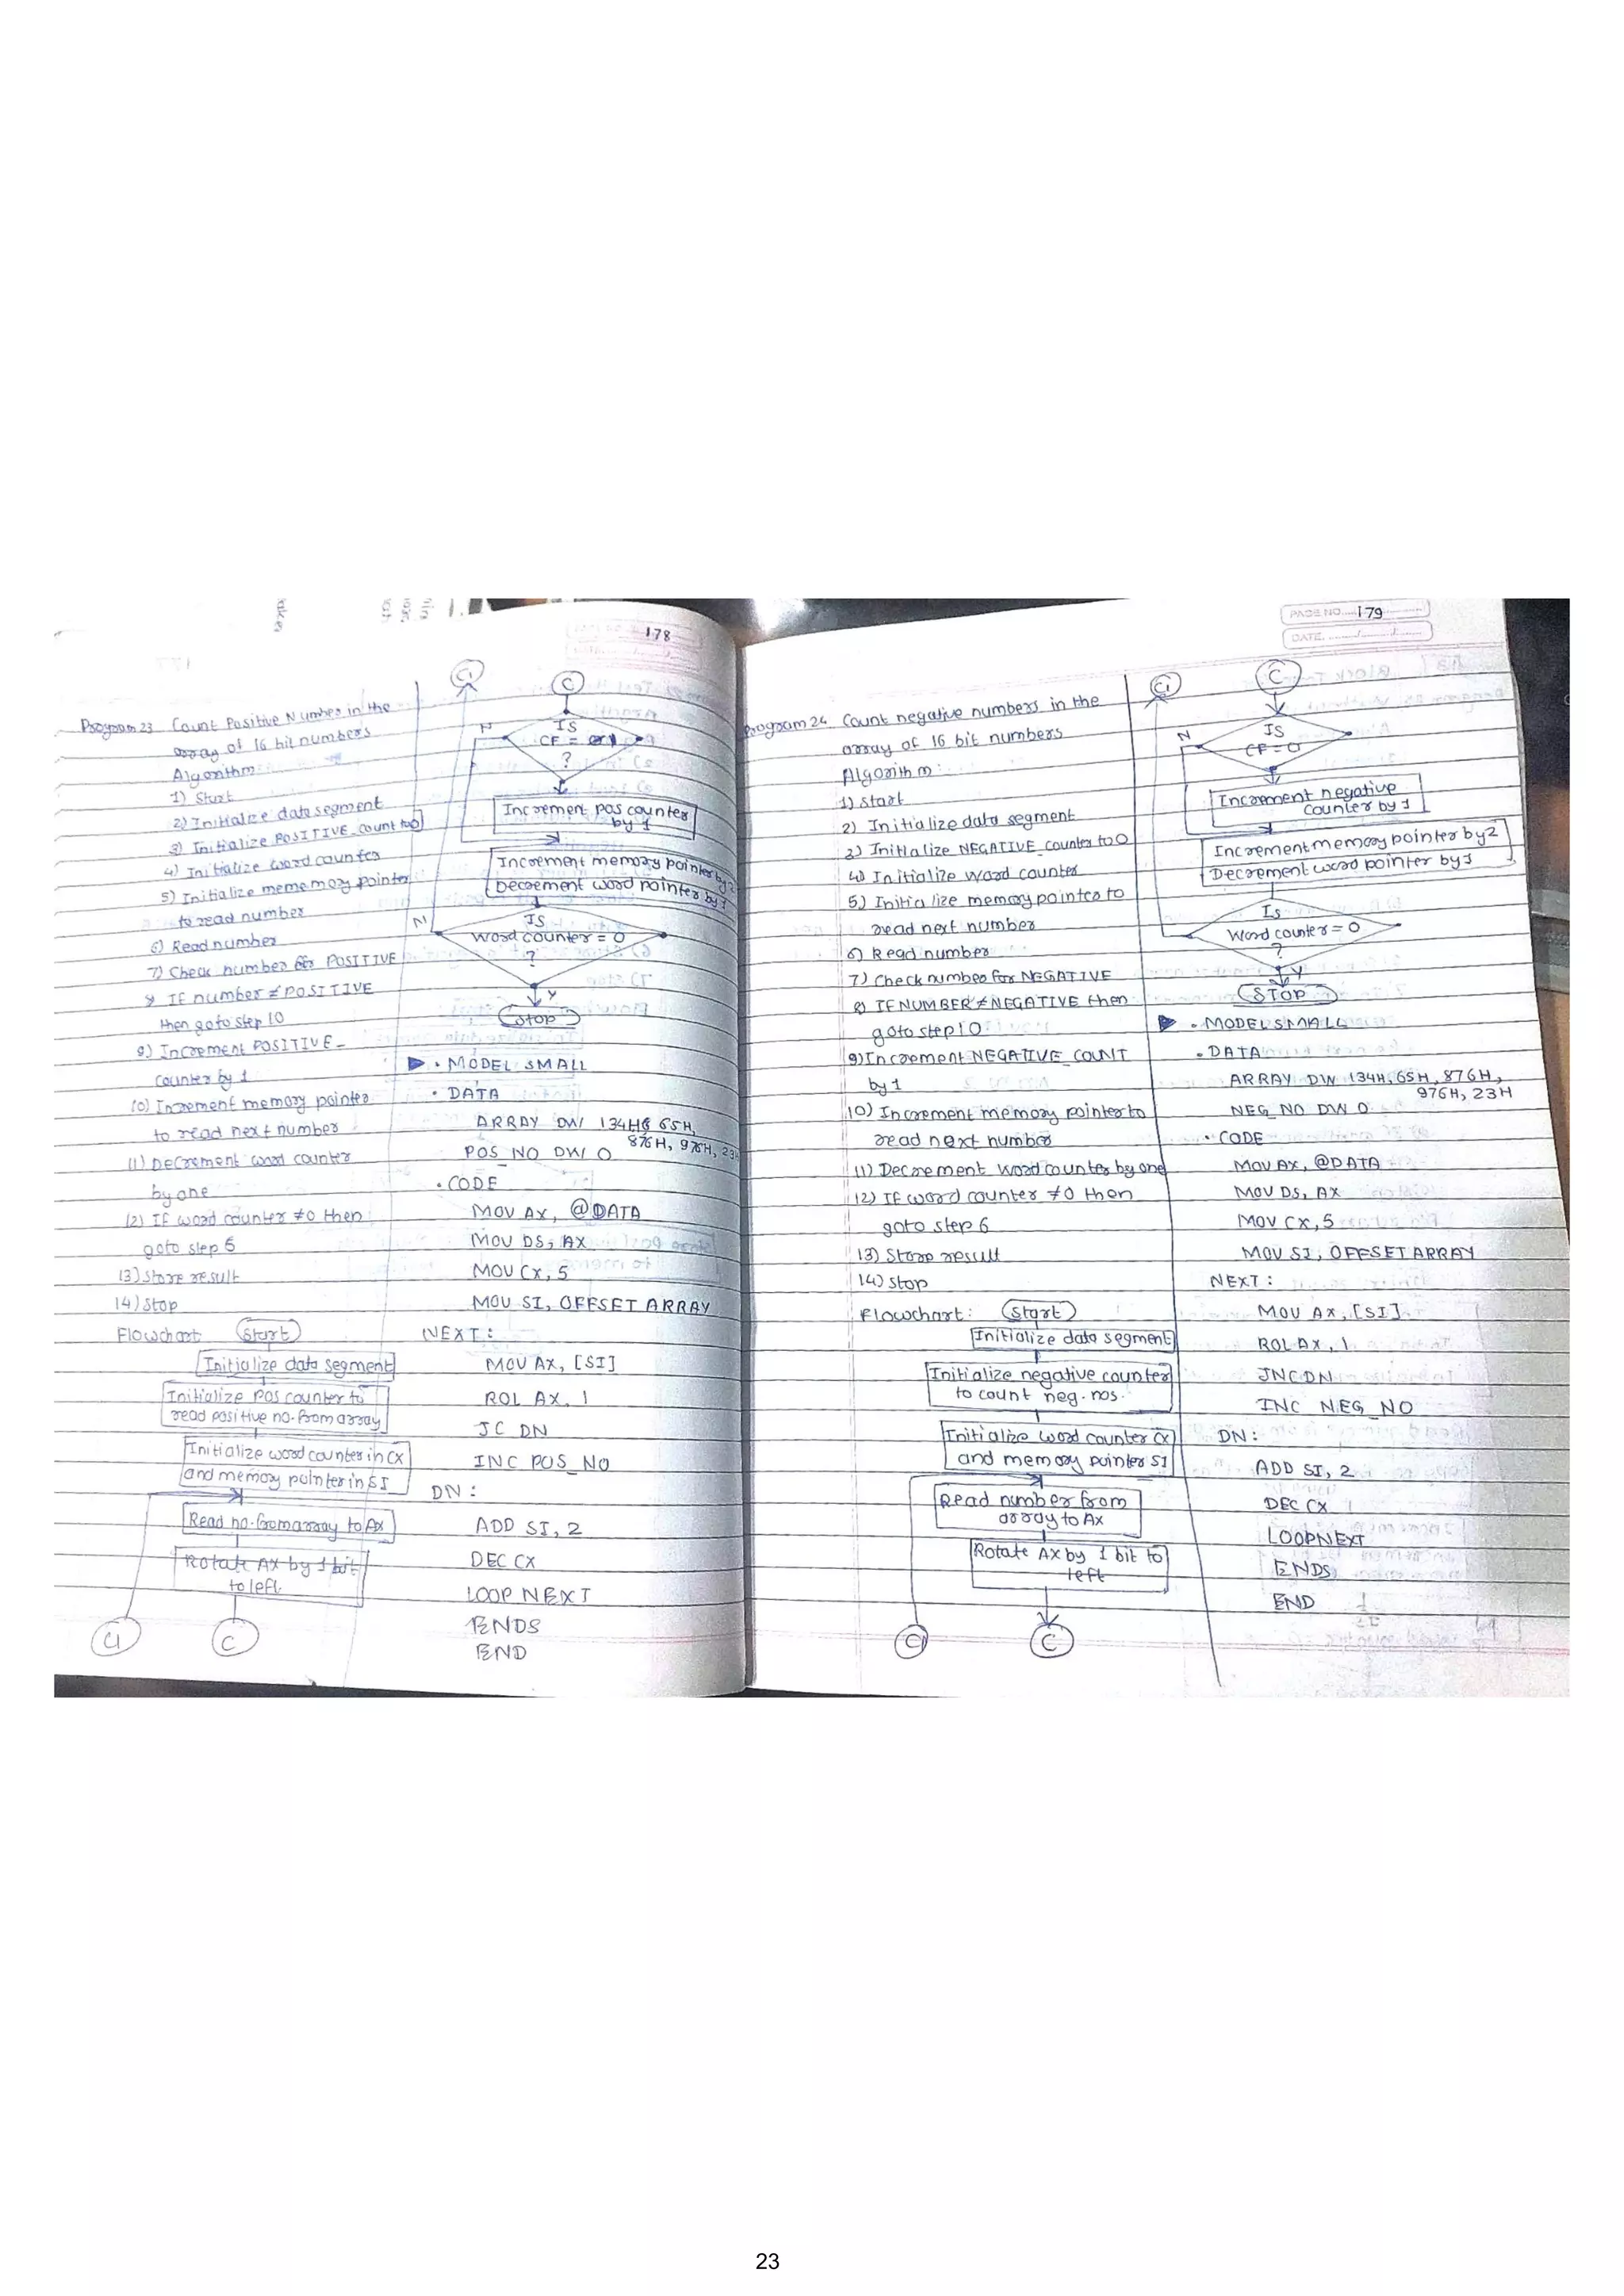 178
Program 23 Count Positive Number in the
array of 16 bit numbers
Algorithm
1) Start
2) Initialize data segment
3) Initialize POSITIVE_count to 0
4) Initialize word counter
5) Initialize mememory pointer
to read number
6) Read number
7) Check number for POSITIVE
8) IF number ≠ POSITIVE
then goto step 10
9) Increment POSITIVE-
Counter by 1
10) Increment memory pointer
to read next number
11) Decrement word counter
by one
12) If word counter ≠ 0 then
goto step 6
13) Store result
14) Stop
Flowchart
Start
Initialize data segment
Initialize pos counter to
read positive no. from array
Initialize word counter in CX
and memory pointer in SI
Read no. from array to AX
Rotate AX by 1 bit
to left
C1
C
C1
C
IS
CF =
?
N
Increment pos counter
by 1
Increment memory pointer by 2
Decrement word pointer by 1
N
IS
word counter = 0
?
Y
Stop
.MODEL SMALL
.DATA
ARRAY DW 134H, 65H,
876H, 976H, 23H
POS_NO DW 0
.CODE
MOV AX, @DATA
MOV DS, AX
MOV CX, 5
MOV SI, OFFSET ARRAY
NEXT:
MOV AX, [SI]
ROL AX, 1
JC DN
INC POS_NO
DN:
ADD SI, 2
DEC CX
LOOP NEXT
ENDS
END
PAGE NO. 179
DATE
Program 24 Count negative numbers in the
array of 16 bit numbers
Algorithm:
1) start
2) Initialize data segment
3) Initialize NEGATIVE_Counter to 0
4) Initialize word counter
5) Initialize memory pointer to
read next number
6) Read number
7) Check number for NEGATIVE
8) IF NUMBER ≠ NEGATIVE then
goto step 10
9) Increment NEGATIVE_COUNT
by 1
10) Increment memory pointer to
read next number
11) Decrement word counter by one
12) If word counter ≠ 0 then
goto step 6
13) Store result
14) stop
Flowchart:
Start
Initialize data segment
Initialize negative counter
to count neg. nos.
Initialize word counter CX
and memory pointer SI
Read number from
array to AX
Rotate AX by 1 bit to
left
C1
C
C1
C
N
IS
CF = 0
Increment negative
counter by 1
Increment memory pointer by 2
Decrement word pointer by 1
Is
Word counter = 0
?
Y
STOP
.MODEL SMALL
.DATA
ARRAY DW 134H, 65H, 876H,
976H, 23H
NEG_NO DW 0
.CODE
MOV AX, @DATA
MOV DS, AX
MOV CX, 5
MOV SI, OFFSET ARRAY
NEXT:
MOV AX, [SI]
ROL AX, 1
JNC DN
INC NEG_NO
DN:
ADD SI, 2
DEC CX
LOOP NEXT
ENDS
END
23